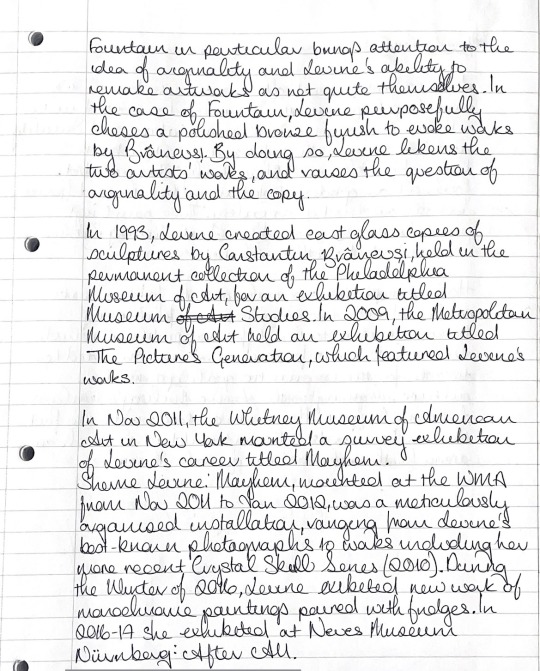 Fountain in particular brings attention to the
idea of originality and Levine's ability to
remake artworks as not quite themselves. In
the case of Fountain, Levine purposefully
choses a polished bronze finish to evoke works
by Brâncuşi. By doing so, Levine likens the
two artists' works, and raises the question of
originality and the copy.
In 1993, Levine created cast glass copies of
sculptures by Constantin Brâncuşi, held in the
permanent collection of the Philadelphia
Museum of Art, for an exhibition titled
Museum of Art Studies. In 2009, the Metropolitan
Museum of Art held an exhibition titled
The Pictures Generation, which featured Levine's
works.
In Nov 2011, the Whitney Museum of American
Art in New York mounted a survey exhibition
of Levine's career titled Mayhem.
Sherrie Levine: Mayhem, mounted at the WMA
from Nov 2011 to Jan 2012, was a meticulously
organised installation, ranging from Levine's
best-known photographs to works including her
more recent Crystal Skull Series (2010). During
the Winter of 2016, Levine exhibited new work of
monochrome paintings paired with fridges. In
2016-17 she exhibited at Neues Museum
Nürnberg: After All.